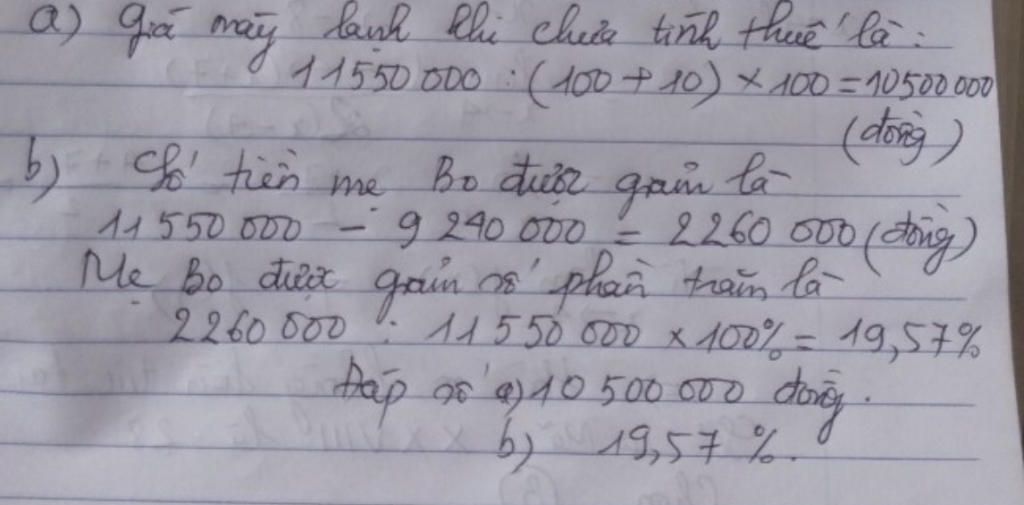 a) Giá máy lạnh khi chưa tính thuế là:
11550000 : (100 + 10) × 100 = 10500000
(đồng)
b) Số tiền mẹ Bo được giảm là
11 550 000 - 9 240 000 = 2260 000 (đồng)
Mẹ Bo được giảm số phần trăm là
2260 000 : 11 550 000 × 100% = 19,57%
Đáp số a) 10 500 000 đồng.
b) 19,57 %.